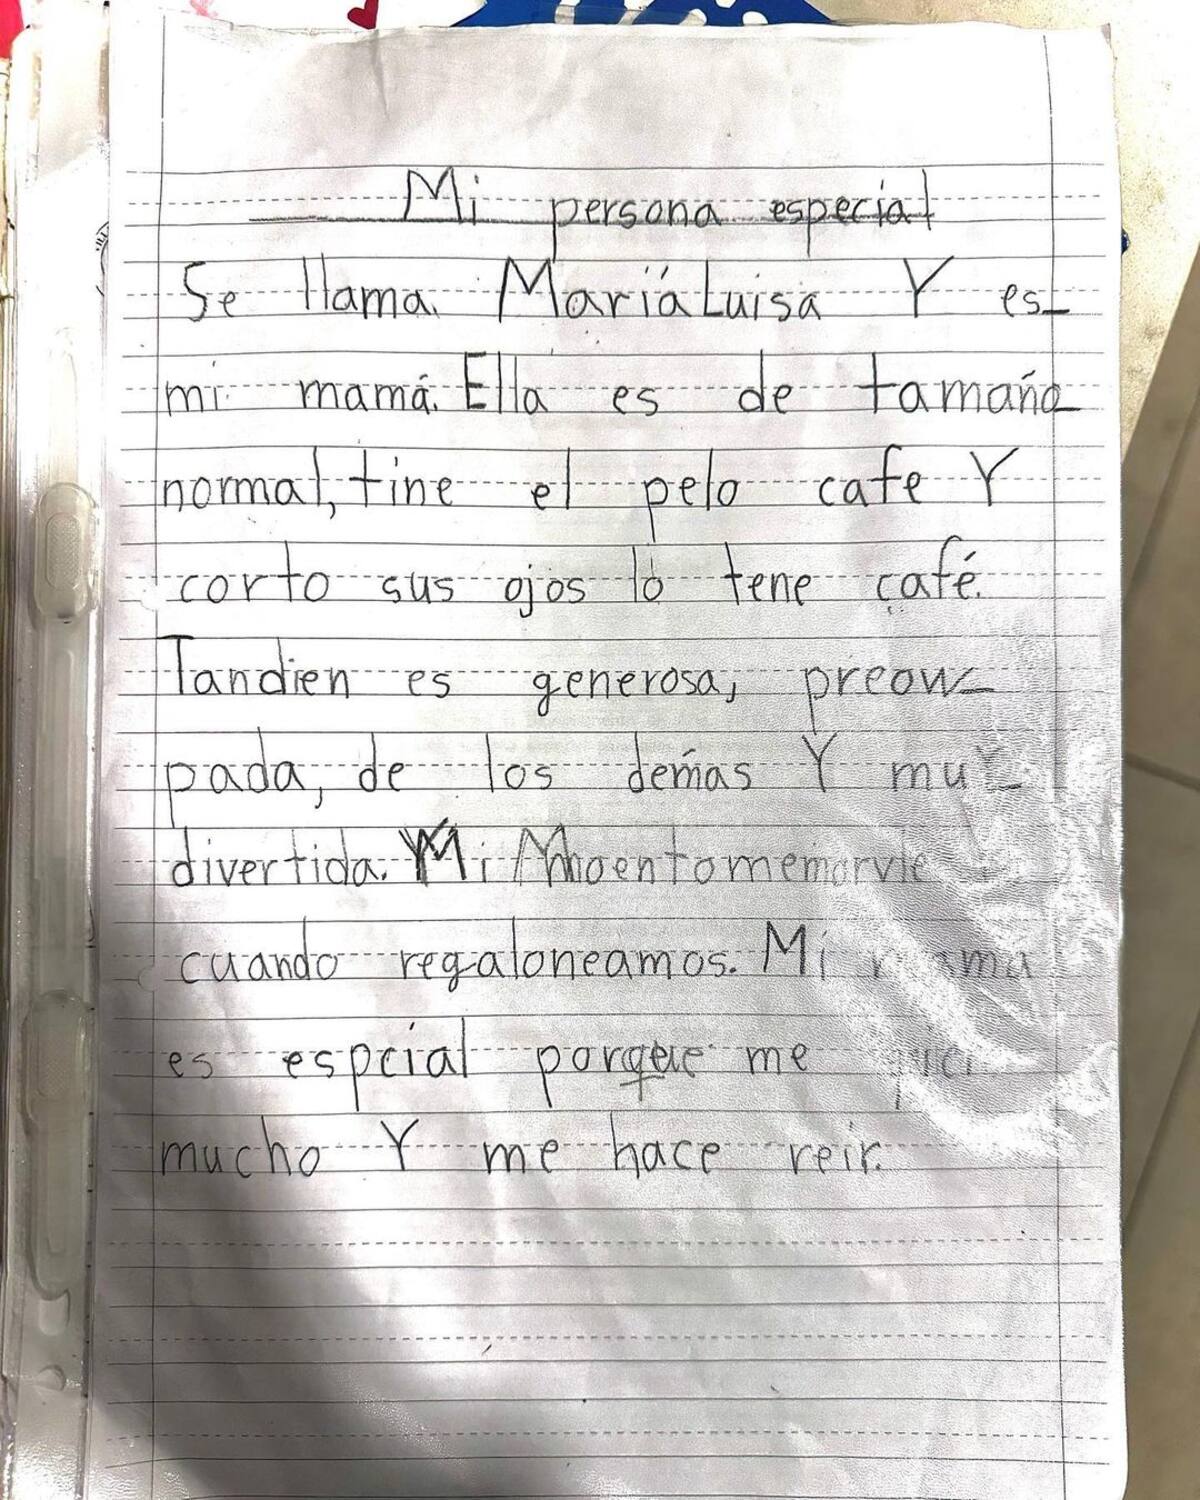 Mi persona especial
Se llama MaríaLuisa Y es
mi mamá. Ella es de tamaño
normal, tine el pelo cafe Y
corto sus ojos lo tene café.
Tandien es generosa, preocu
pada, de los demás Y muy
divertida. Mi Mmoentomemorvle
cuando regaloneamos. Mi mama
es espcial porque me
mucho Y me hace reir.